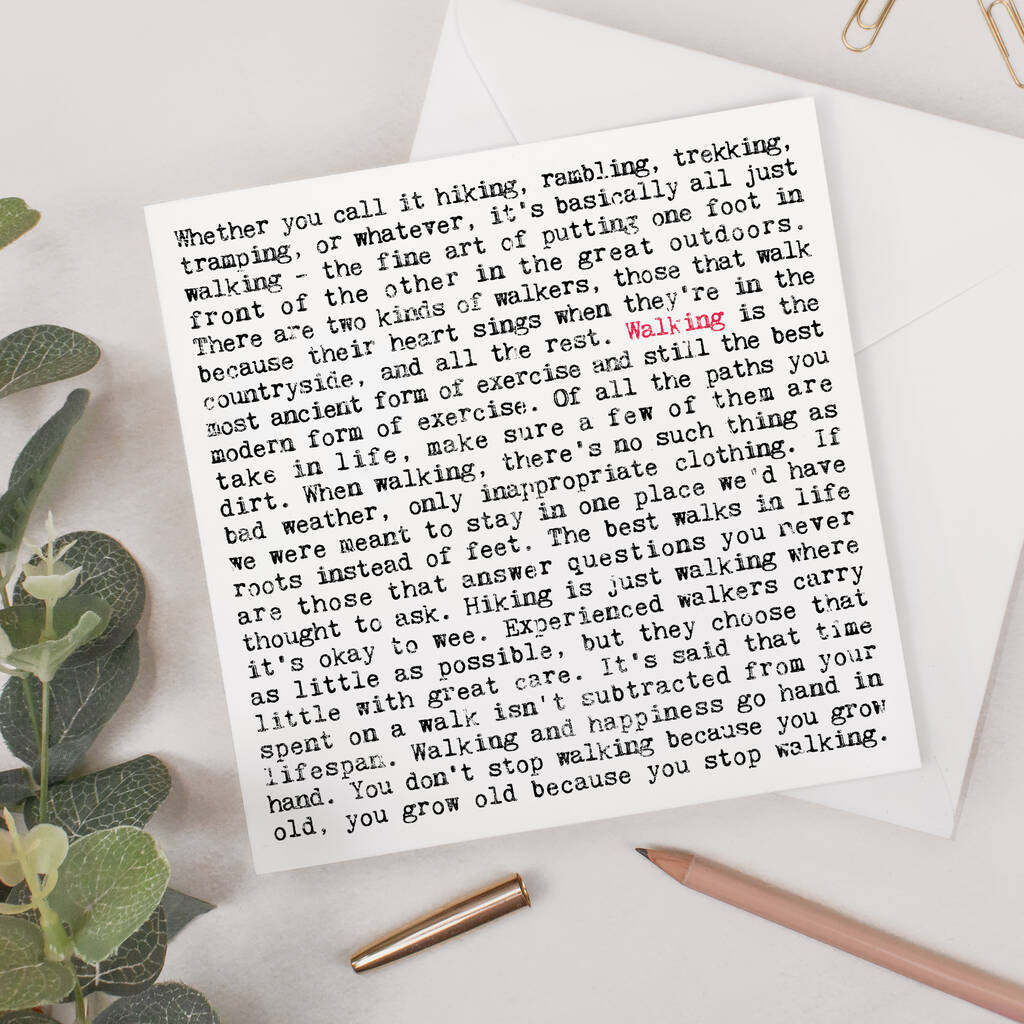 Whether you call it hiking, rambling, trekking,
tramping, or whatever, it's basically all just
walking - the fine art of putting one foot in
front of the other in the great outdoors.
There are two kinds of walkers, those that walk
because their heart sings when they're in the
countryside, and all the rest. Walking is the
most ancient form of exercise and still the best
modern form of exercise. Of all the paths you
take in life, make sure a few of them are
dirt. When walking, there's no such thing as
bad weather, only inappropriate clothing. If
we were meant to stay in one place we'd have
roots instead of feet. The best walks in life
are those that answer questions you never
thought to ask. Hiking is just walking where
it's okay to wee. Experienced walkers carry
as little as possible, but they choose that
little with great care. It's said that time
spent on a walk isn't subtracted from your
lifespan. Walking and happiness go hand in
hand. You don't stop walking because you grow
old, you grow old because you stop walking.